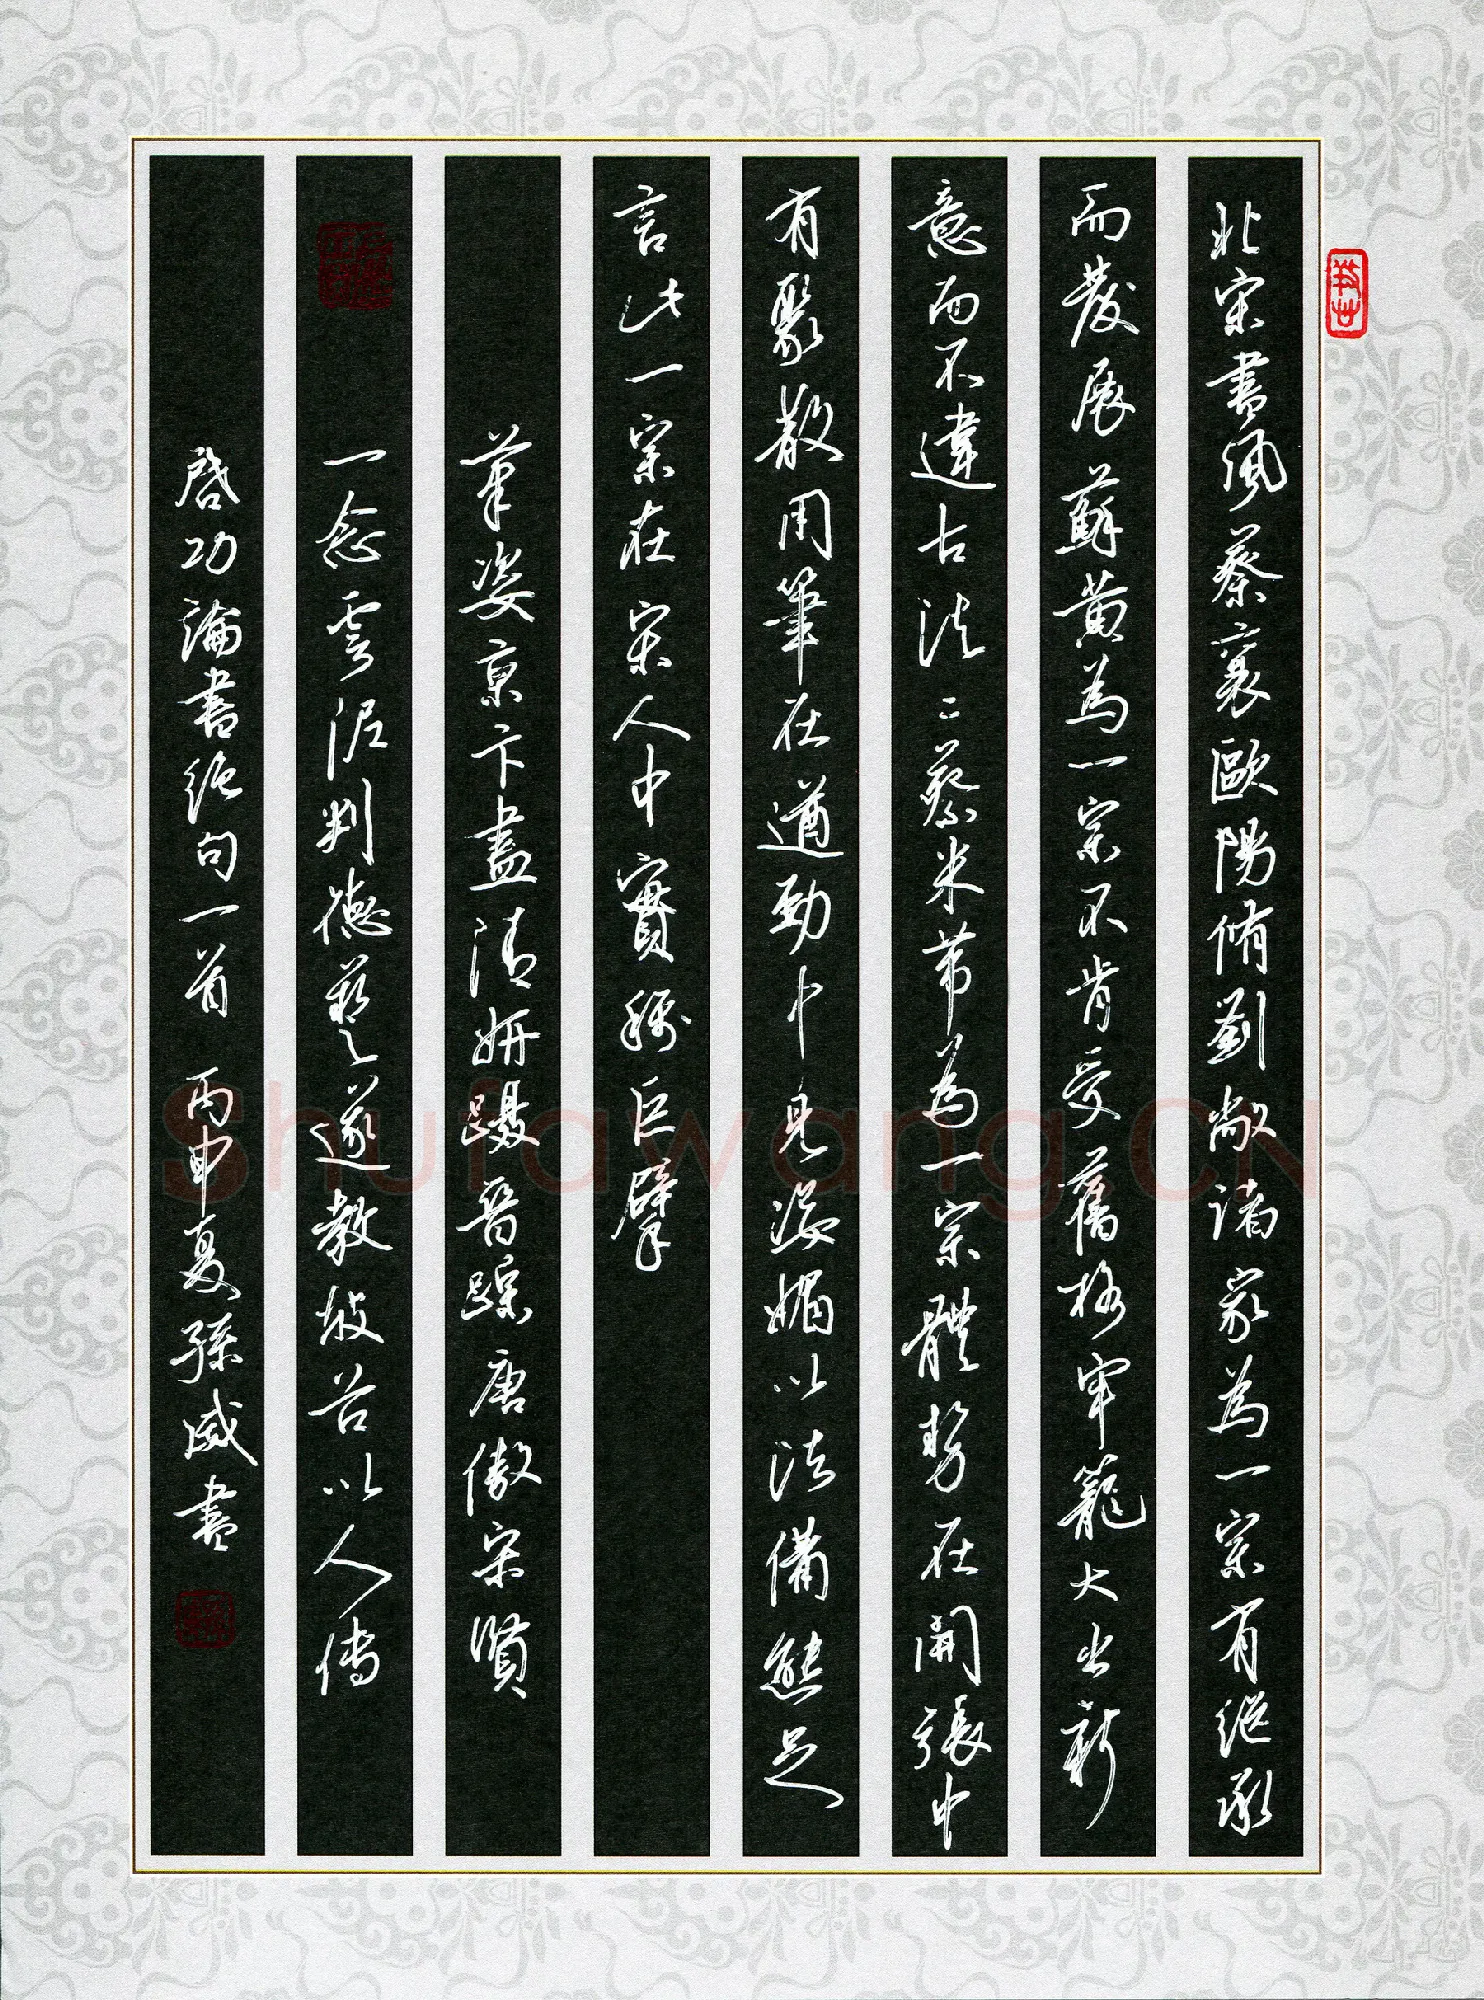 北宋書風蔡襄歐陽脩劉敞諸家為一宗有继承
而發展蘇黃為一宗不肯受舊格牢籠大出新
意而不違古法二蔡米芾為一宗體势在開張中
有聚散用筆在遒勁中見姿媚以法備態足
言此一宗在宋人中實稱巨擘
筆姿京卞盡清妍躡晋踪唐傲宋賢
一念雲泥判德藝遂教坡谷以人傳
启功論書绝句一首 丙申夏孫威書
Shufawang.CN